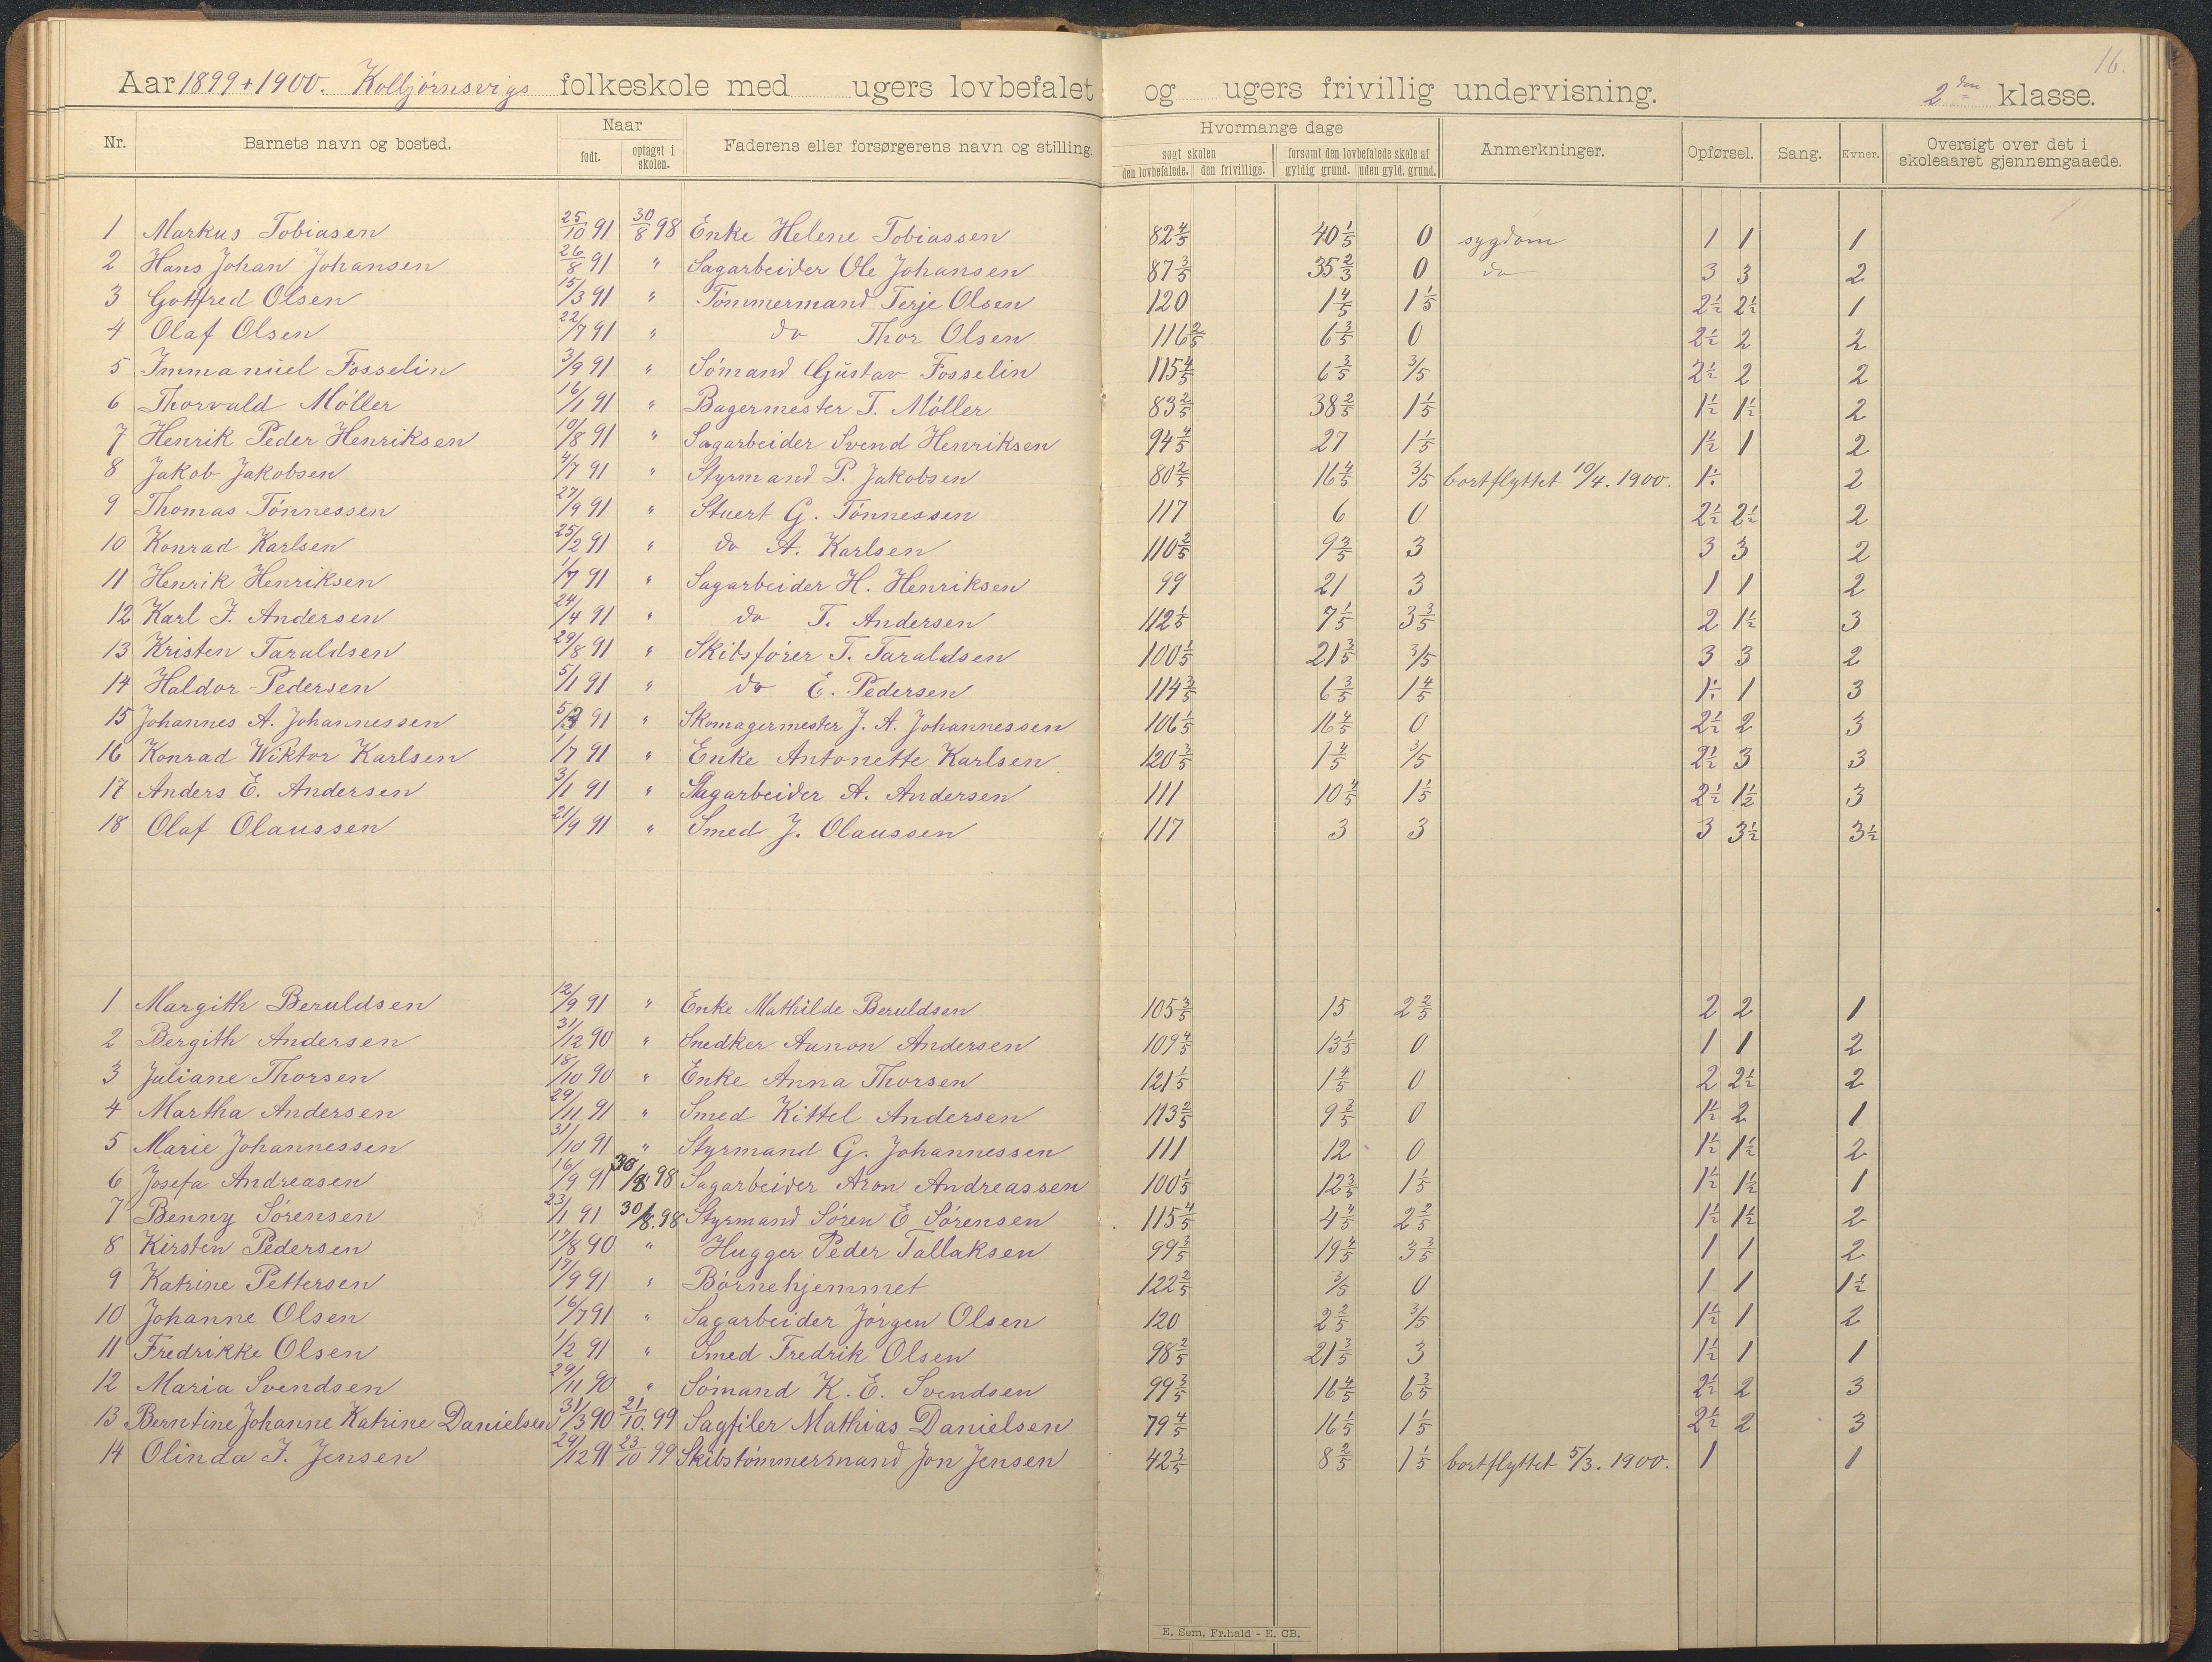 16.
Aar 1899+1900. Kolbjørnsvigs folkeskole med ugers lovbefalet og ugers frivillig undervisning. 2den klasse.
Nr. Barnets navn og bosted. Naar født. optaget i skolen. Faderens eller forsørgerens navn og stilling. Hvormange dage søgt skolen den lovbefalede. den frivillige. forsømt den lovbefalede skole af gyldig grund. uden gyld. grund. Anmerkninger. Opførsel. Sang. Evner. Oversigt over det i skoleaaret gjennemgaaede.
1 Markus Tobiasen 25/10 91 30/8 98 Enke Helene Tobiassen 82 4/5 40 1/5 0 sygdom 1 1 1
2 Hans Johan Johansen 26/8 91 " Sagarbeider Ole Johansen 87 3/5 35 2/3 0 do 3 3 2
3 Gotfred Olsen 15/3 91 " Tømmermand Terje Olsen 120 1 4/5 1 1/5 2 1/2 2 1/2 1
4 Olaf Olsen 22/7 91 " do Thor Olsen 116 2/5 6 3/5 0 2 1/2 2 2
5 Immanuel Fosselin 3/9 91 " Sømand Gustav Fosselin 115 4/5 6 3/5 3/5 2 1/2 2 2
6 Thorvald Møller 16/1 91 " Bagermester T. Møller 83 2/5 38 2/5 1 1/5 1 1/2 1 1/2 2
7 Henrik Peder Henriksen 10/8 91 " Sagarbeider Svend Henriksen 94 4/5 27 1 1/5 1 1/2 1 2
8 Jakob Jakobsen 4/7 91 " Styrmand P. Jakobsen 80 2/5 16 4/5 3/5 bortflyttet 10/4. 1900. 1 1/2 2
9 Thomas Tønnessen 27/9 91 " Stuert G. Tønnessen 117 6 0 2 1/2 2 1/2 2
10 Konrad Karlsen 25/2 91 " do A. Karlsen 110 2/5 9 3/5 3 3 3 2
11 Henrik Henriksen 1/7 91 " Sagarbeider H. Henriksen 99 21 3 1 1 2
12 Karl J. Andersen 24/4 91 " do T. Andersen 112 1/5 7 1/5 3 3/5 2 1 1/2 3
13 Kristen Taraldsen 29/8 91 " Skibsfører T. Taraldsen 100 1/5 21 3/5 3/5 3 3 2
14 Haldor Pedersen 5/1 91 " do E. Pedersen 114 3/5 6 3/5 1 4/5 1 1/2 1 3
15 Johannes A. Johannessen 5/3 91 " Skomagermester J. A. Johannessen 106 1/5 16 4/5 0 2 1/2 2 3
16 Konrad Wiktor Karlsen 1/7 91 " Enke Antonette Karlsen 120 3/5 1 4/5 3/5 2 1/2 3 3
17 Anders E. Andersen 3/1 91 " Sagarbeider A. Andersen 111 10 4/5 1 1/5 2 1/2 1 1/2 3
18 Olaf Olaussen 21/9 91 " Smed J. Olaussen 117 3 3 3 3 1/2 3 1/2
1 Margith Beruldsen 12/9 91 " Enke Mathilde Beruldsen 105 3/5 15 2 2/5 2 2 1
2 Bergith Andersen 31/12 90 " Snedker Aanon Andersen 109 4/5 13 1/5 0 1 1 2
3 Juliane Thorsen 18/10 90 " Enke Anna Thorsen 121 1/5 1 4/5 0 2 2 1/2 2
4 Martha Andersen 29/11 91 " Smed Kittel Andersen 113 2/5 9 3/5 0 1 1/2 2 1
5 Marie Johannessen 31/10 91 " Styrmand G. Johannessen 111 12 0 1 1/2 1 1/2 2
6 Josefa Andreasen 16/9 91 30/8 98 Sagarbeider Aron Andreassen 100 1/5 12 3/5 1 1/5 1 1/2 1 1/2 1
7 Benny Sørensen 23/1 91 30/8. 98 Styrmand Søren E Sørensen 115 4/5 4 4/5 2 2/5 1 1/2 1 1/2 2
8 Kirsten Pedersen 17/8 90 " Hugger Peder Tallaksen 99 3/5 19 4/5 3 3/5 1 1 2
9 Katrine Pettersen 17/9 91 " Børnehjemmet 122 2/5 3/5 0 1 1 1 1/2
10 Johanne Olsen 16/7 91 " Sagarbeider Jørgen Olsen 120 2 2/5 3/5 1 1/2 1 2
11 Fredrikke Olsen 1/2 91 " Smed Fredrik Olsen 98 2/5 21 3/5 3 1 1/2 1 1
12 Maria Svendsen 29/11 90 " Sømand K. E. Svendsen 99 3/5 16 4/5 6 3/5 2 1/2 2 3
13 Berntine Johanne Katrine Danielsen 31/3 90 21/10. 99 Sagfiler Mathias Danielsen 79 4/5 16 1/5 1 1/5 2 1/2 2 3
14 Olinda J. Jensen 29/12 91 23/10 99 Skibstømmermand Jon Jensen 42 3/5 8 2/5 1 1/5 bortflyttet 5/3. 1900. 1 1
E. Sem, Fr.hald - E. CB.